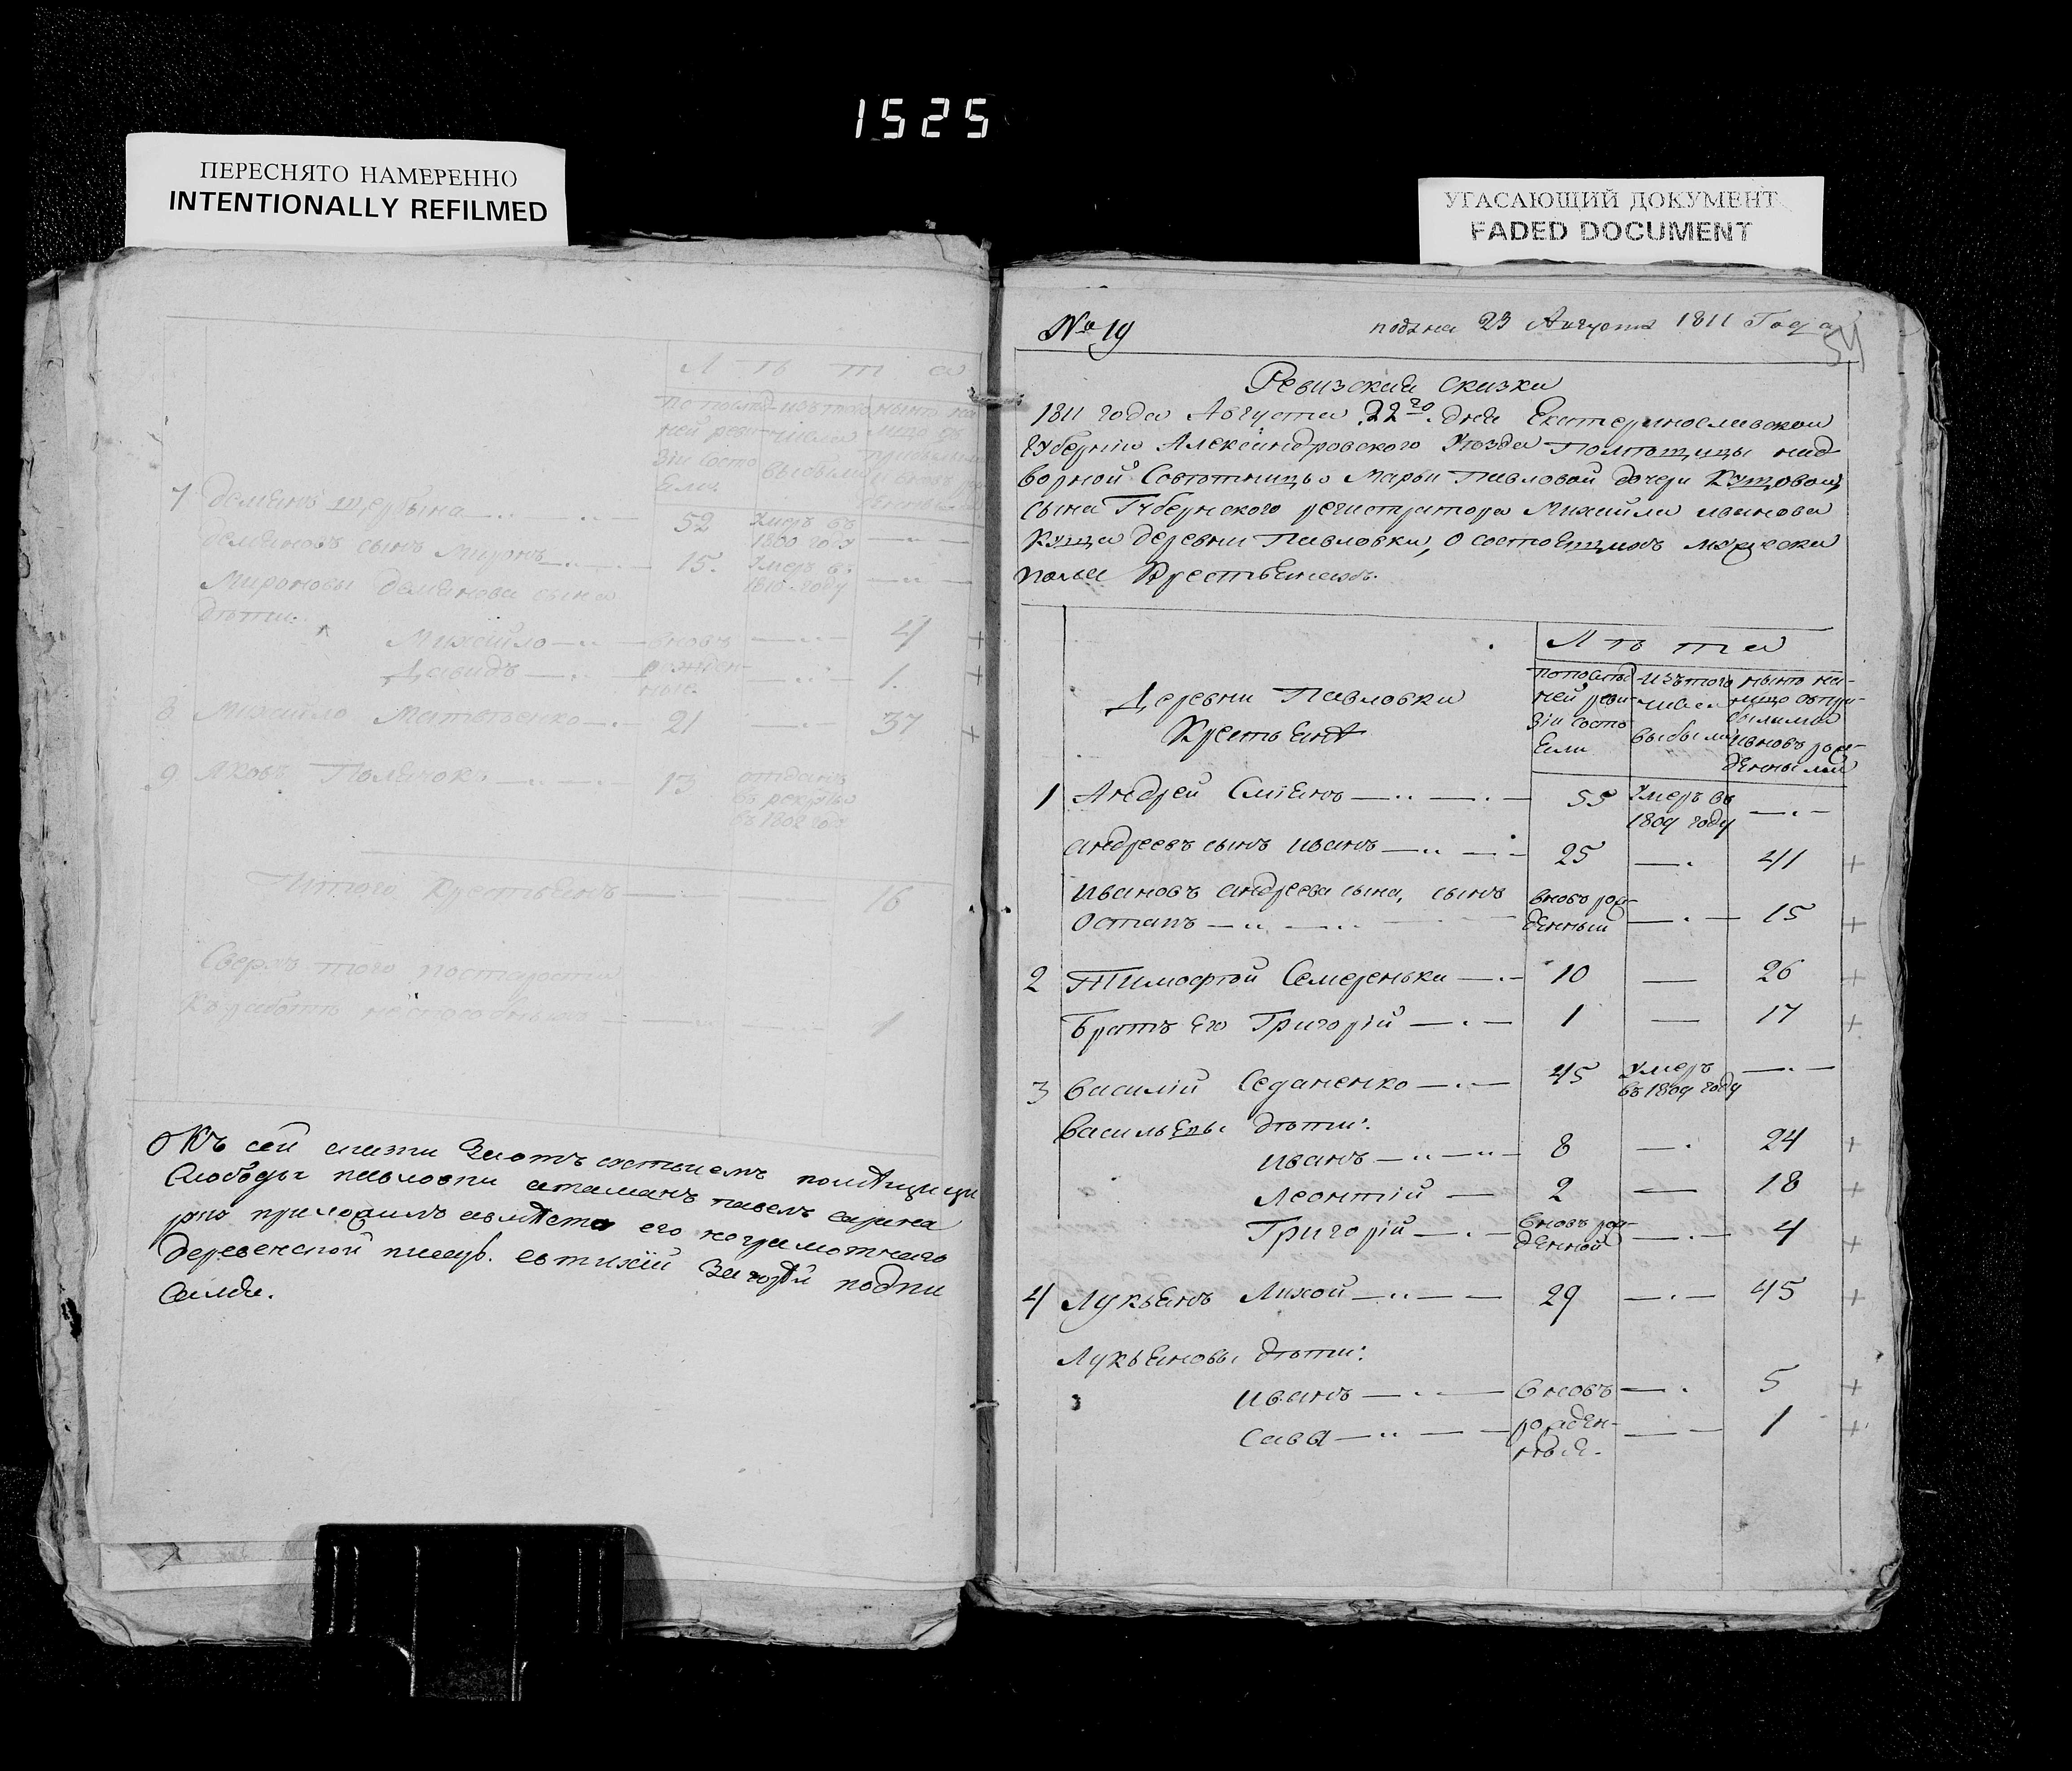 1525
ПЕРЕСНЯТО НАМЕРЕННО
INTENTIONALLY REFILMED
УГАСАЮЩИЙ ДОКУМЕНТ
FADED DOCUMENT
Л ѣ т а
по послѣд- изъ того нынѣ на
ней реви- числа лицо съ
зіи состо выбыли
яли
7 Демьянъ Щербина 52 умеръ въ
1800 году
Демьяновъ сынъ Миронъ 15. умеръ в.
1810 году
Мироновы Демьянова сына
дѣти:
Михайло вновь 4 +
Давидъ рожден- 1. +
ные
8 Михайло Матвѣенко 21 37 +
9 Яковъ 13 отданъ
въ рекруты
въ 1802 году
Итого Крестьянъ 16
Сверхъ того по старости
къ работѣ неспособныхъ 1
Къ сей скизки
Слободы павловки атаманъ павелъ
приложилъ авмѣста его неграмотнаго
деревенской писарь. евтихій подпи
салъся.
№ 19 подана 23 Августа 1811 Года
54
Ревизская сказка
1811 года Августа 22го дня Екатеринославской
Губерніи Александровского Уезда Помѣщицы над
ворной Совѣтницы Марьи Павловой дочери Кущовой,
сына Губернского регистратора Михайла иванова
Куща деревни Павловки, о состоящихъ мужеска
пола Крестьянахъ.
Л ѣ т а
Деревни Павловки
Крестьянъ
по послѣд-
ней реви-
зіи состо
яли
изъ того
числа
выбыли
нынѣ на-
лицо съ при-
былыми
и вновь рож-
денными
1 Андрей Сміянъ 55 Умеръ въ
1809 году
андреевъ сынъ иванъ 25 41 +
ивановъ андреева сына, сынъ вновь рож-
Остапъ денный 15 +
2 Тимофѣй Семеренька 10 26 +
Братъ его Григорій 1 17 +
3 Василій Седаненко 45 Умеръ
въ 1809 году
Васильевы дѣти:
иванъ 8 24 +
Леонтій 2 18 +
Григорій вновь рож- 4 +
денной
4 Лукьянъ Лихой 29 45 +
Лукьяновы дѣти:
иванъ вновь 5 +
Сава рожден- 1 +
ныя.